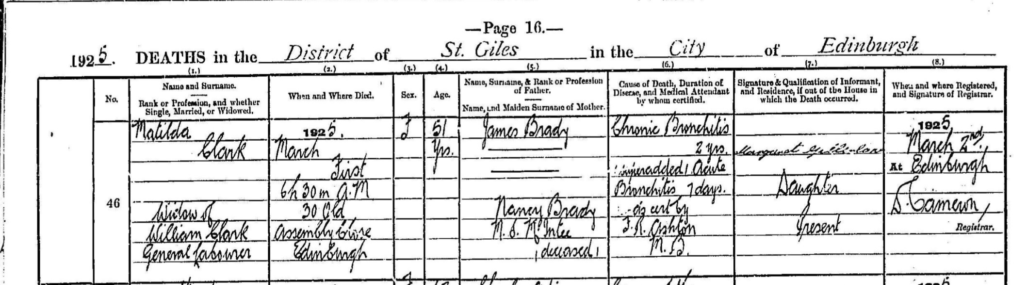 —Page 16.—
1925. DEATHS in the District of St. Giles in the City of Edinburgh
(1.) (2.) (3.) (4.) (5.) (6.) (7.) (8.)
No.
Name and Surname.
Rank or Profession, and whether Single, Married, or Widowed.
When and Where Died.
Sex.
Age.
Name, Surname, & Rank or Profession of Father.
Name, and Maiden Surname of Mother.
Cause of Death, Duration of Disease, and Medical Attendant by whom certified.
Signature & Qualification of Informant, and Residence, if out of the House in which the Death occurred.
When and where Registered, and Signature of Registrar.
46
Matilda
Clark
Widow of
William Clark
General Labourer
1925.
March
First
6h 30m A.M
30 Old
Assembly Close
Edinburgh
F
51
Yrs.
James Brady
Nancy Brady
M.S. McInlee
(deceased)
Chronic Bronchitis
2 yrs.
Acute
Bronchitis 7 days.
as cert by
F. R. Ashton
M.B.
Margaret
Daughter
Present
1925
March 2nd.
At Edinburgh
Cameron,
Registrar.
1925